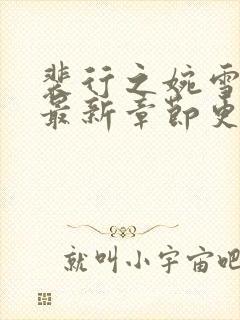 裴行之婉雪
最新章节更
就叫小宇宙吧